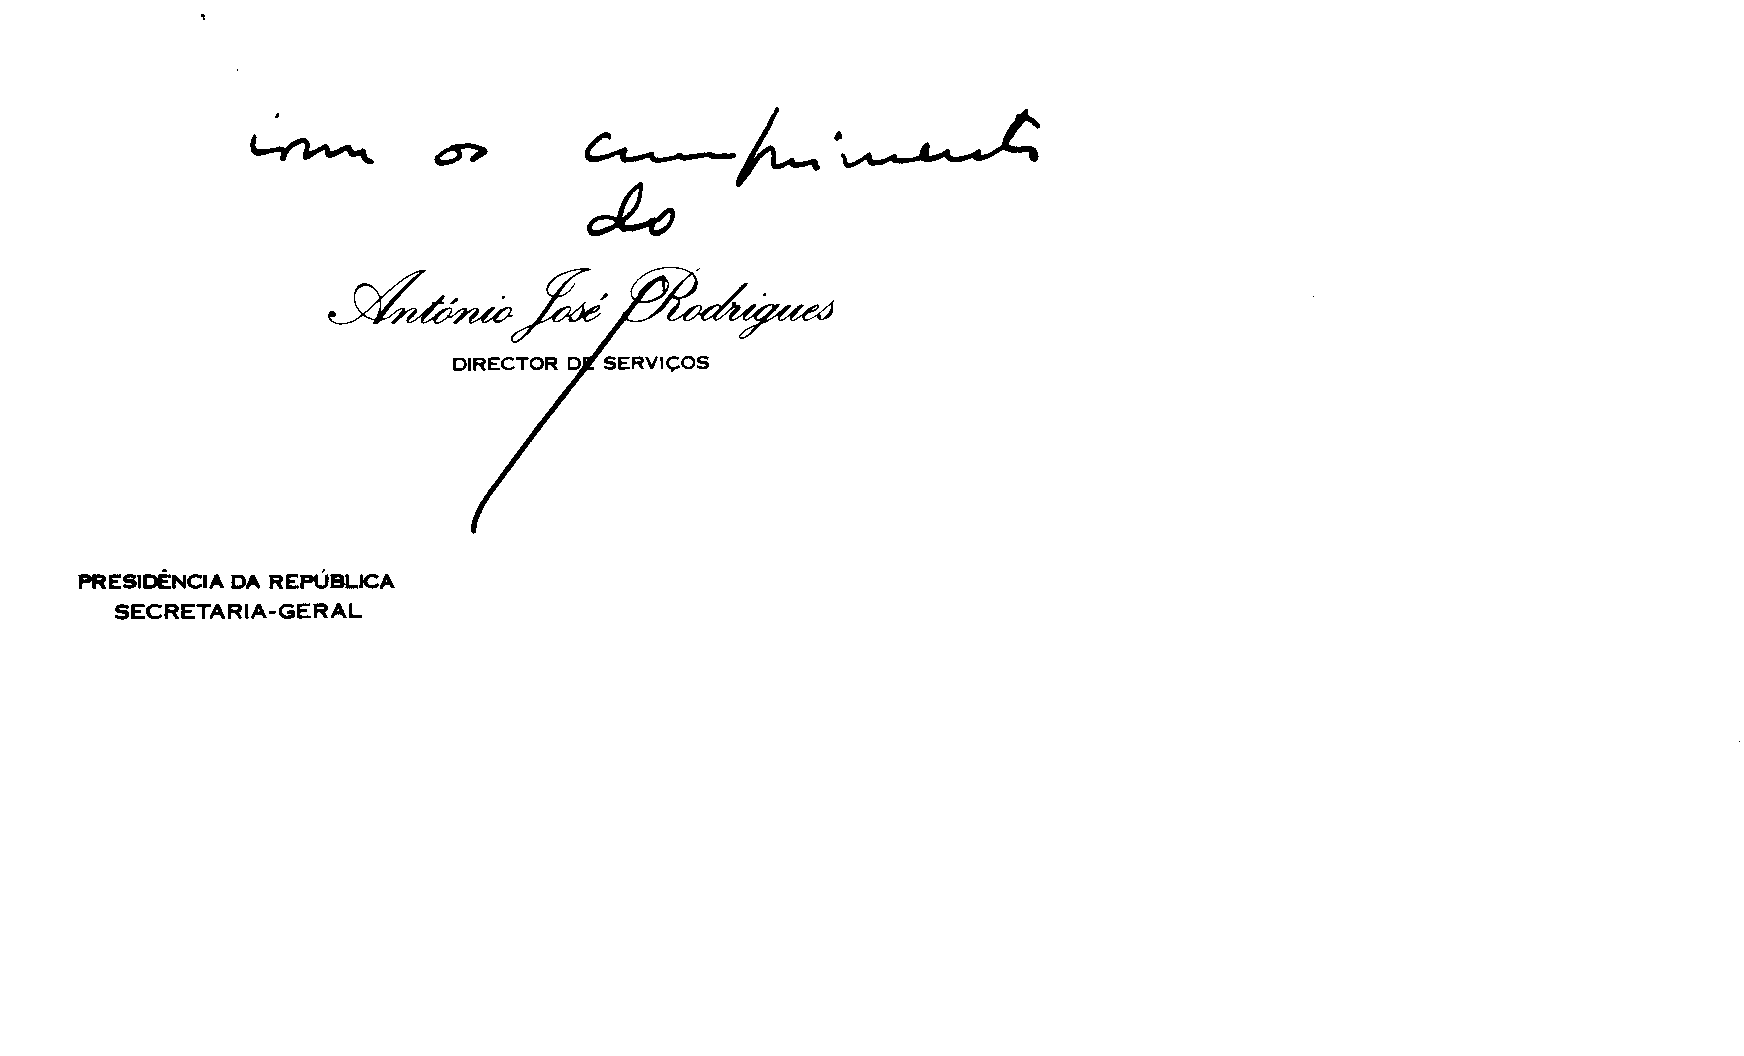 com os cumprimentos
do
António José Rodrigues
DIRECTOR DE SERVIÇOS
PRESIDÊNCIA DA REPÚBLICA
SECRETARIA-GERAL